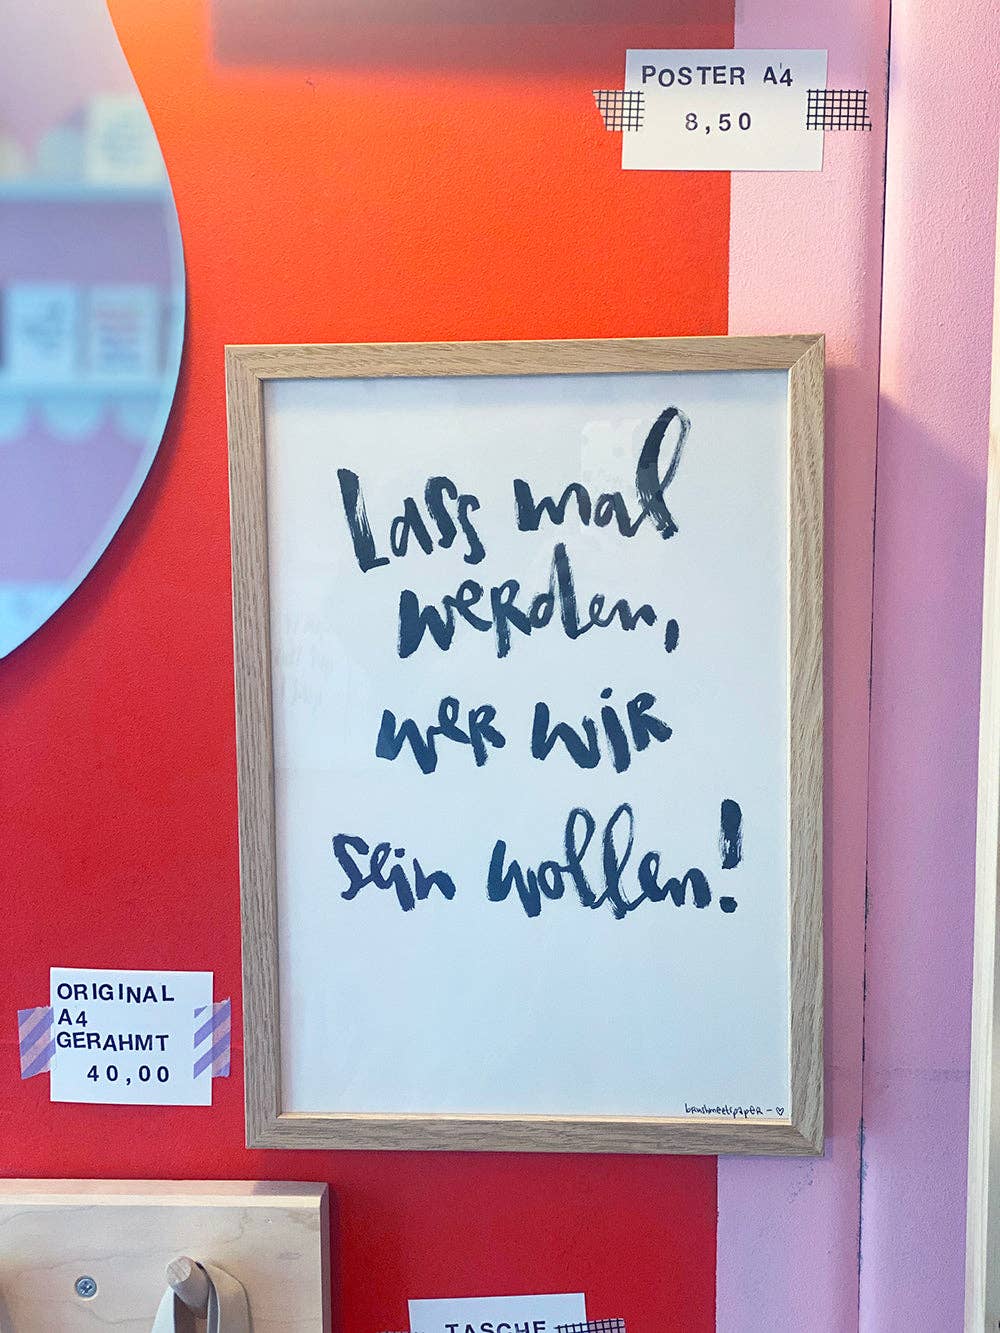 POSTER A4
8,50
Lass mal
werden,
wer wir
sein wollen!
brushmeetspaper – ♡
ORIGINAL
A4
GERAHMT
40,00
TASCHE